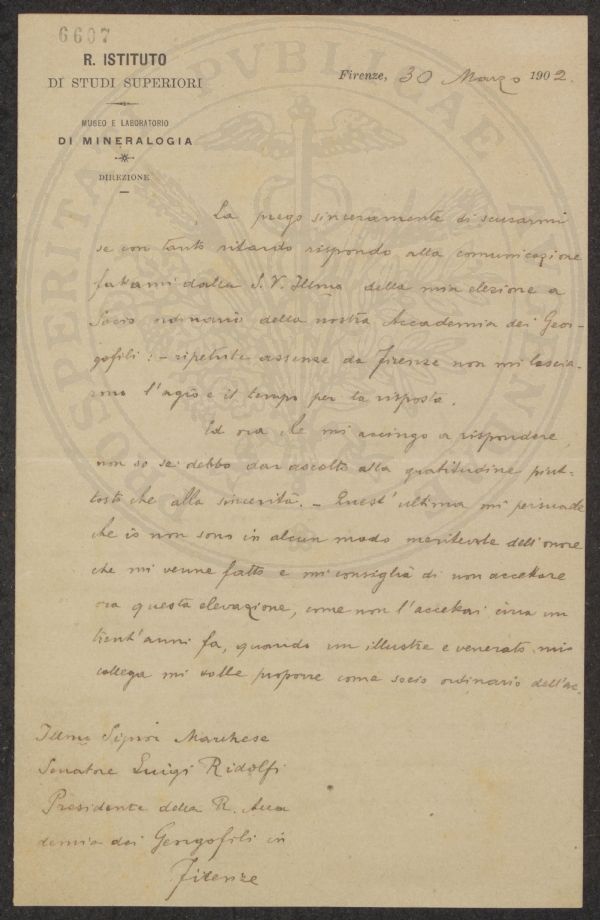 6607
R. ISTITUTO
DI STUDI SUPERIORI
MUSEO E LABORATORIO
DI MINERALOGIA
DIREZIONE
Firenze, 30 Marzo 1902.
PROSPERITATI PVBLICAE AVGENDAE
La prego sinceramente di scusarmi
se con tanto ritardo rispondo alla comunicazione
fattami dalla S. V. Illma della mia elezione a
Socio ordinario della nostra Accademia dei Geor-
gofili: - ripetute assenze da Firenze non mi lascia-
rono l'agio e il tempo per la risposta.
Ed ora che mi accingo a rispondere,
non so se debbo dar ascolto alla gratitudine piut-
tosto che alla sincerità. - Quest'ultima mi persuade
che io non sono in alcun modo meritevole dell'onore
che mi venne fatto e mi consiglia di non accettare
ora questa elevazione, come non l'accettai circa un
trent'anni fa, quando un illustre e venerato mio
collega mi volle proporre come socio ordinario dell'Ac-
Illmo Signor Marchese
Senatore Luigi Ridolfi
Presidente della R. Acca
demia dei Gergofili in
Firenze